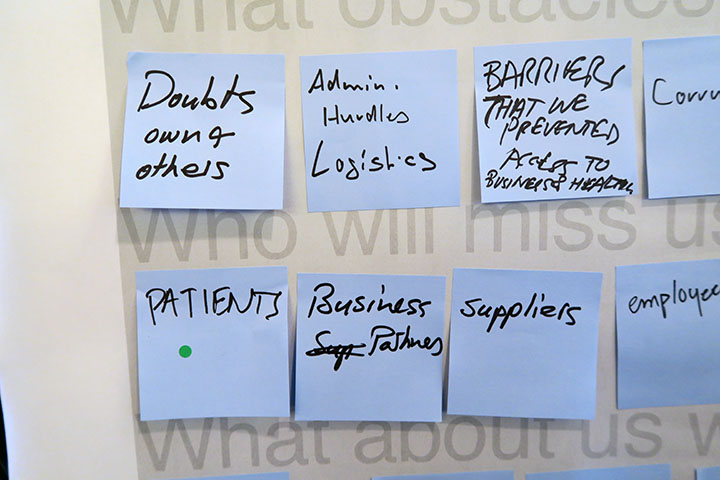 What obstacles
Doubts
own &
others
Admin.
Hurdles
Logistics
BARRIERS
THAT WE
PREVENTED
ACCESS TO
BUSINESS & HEALTH
Who will miss us
PATIENTS
Business
Partners
suppliers
employee
What about us w